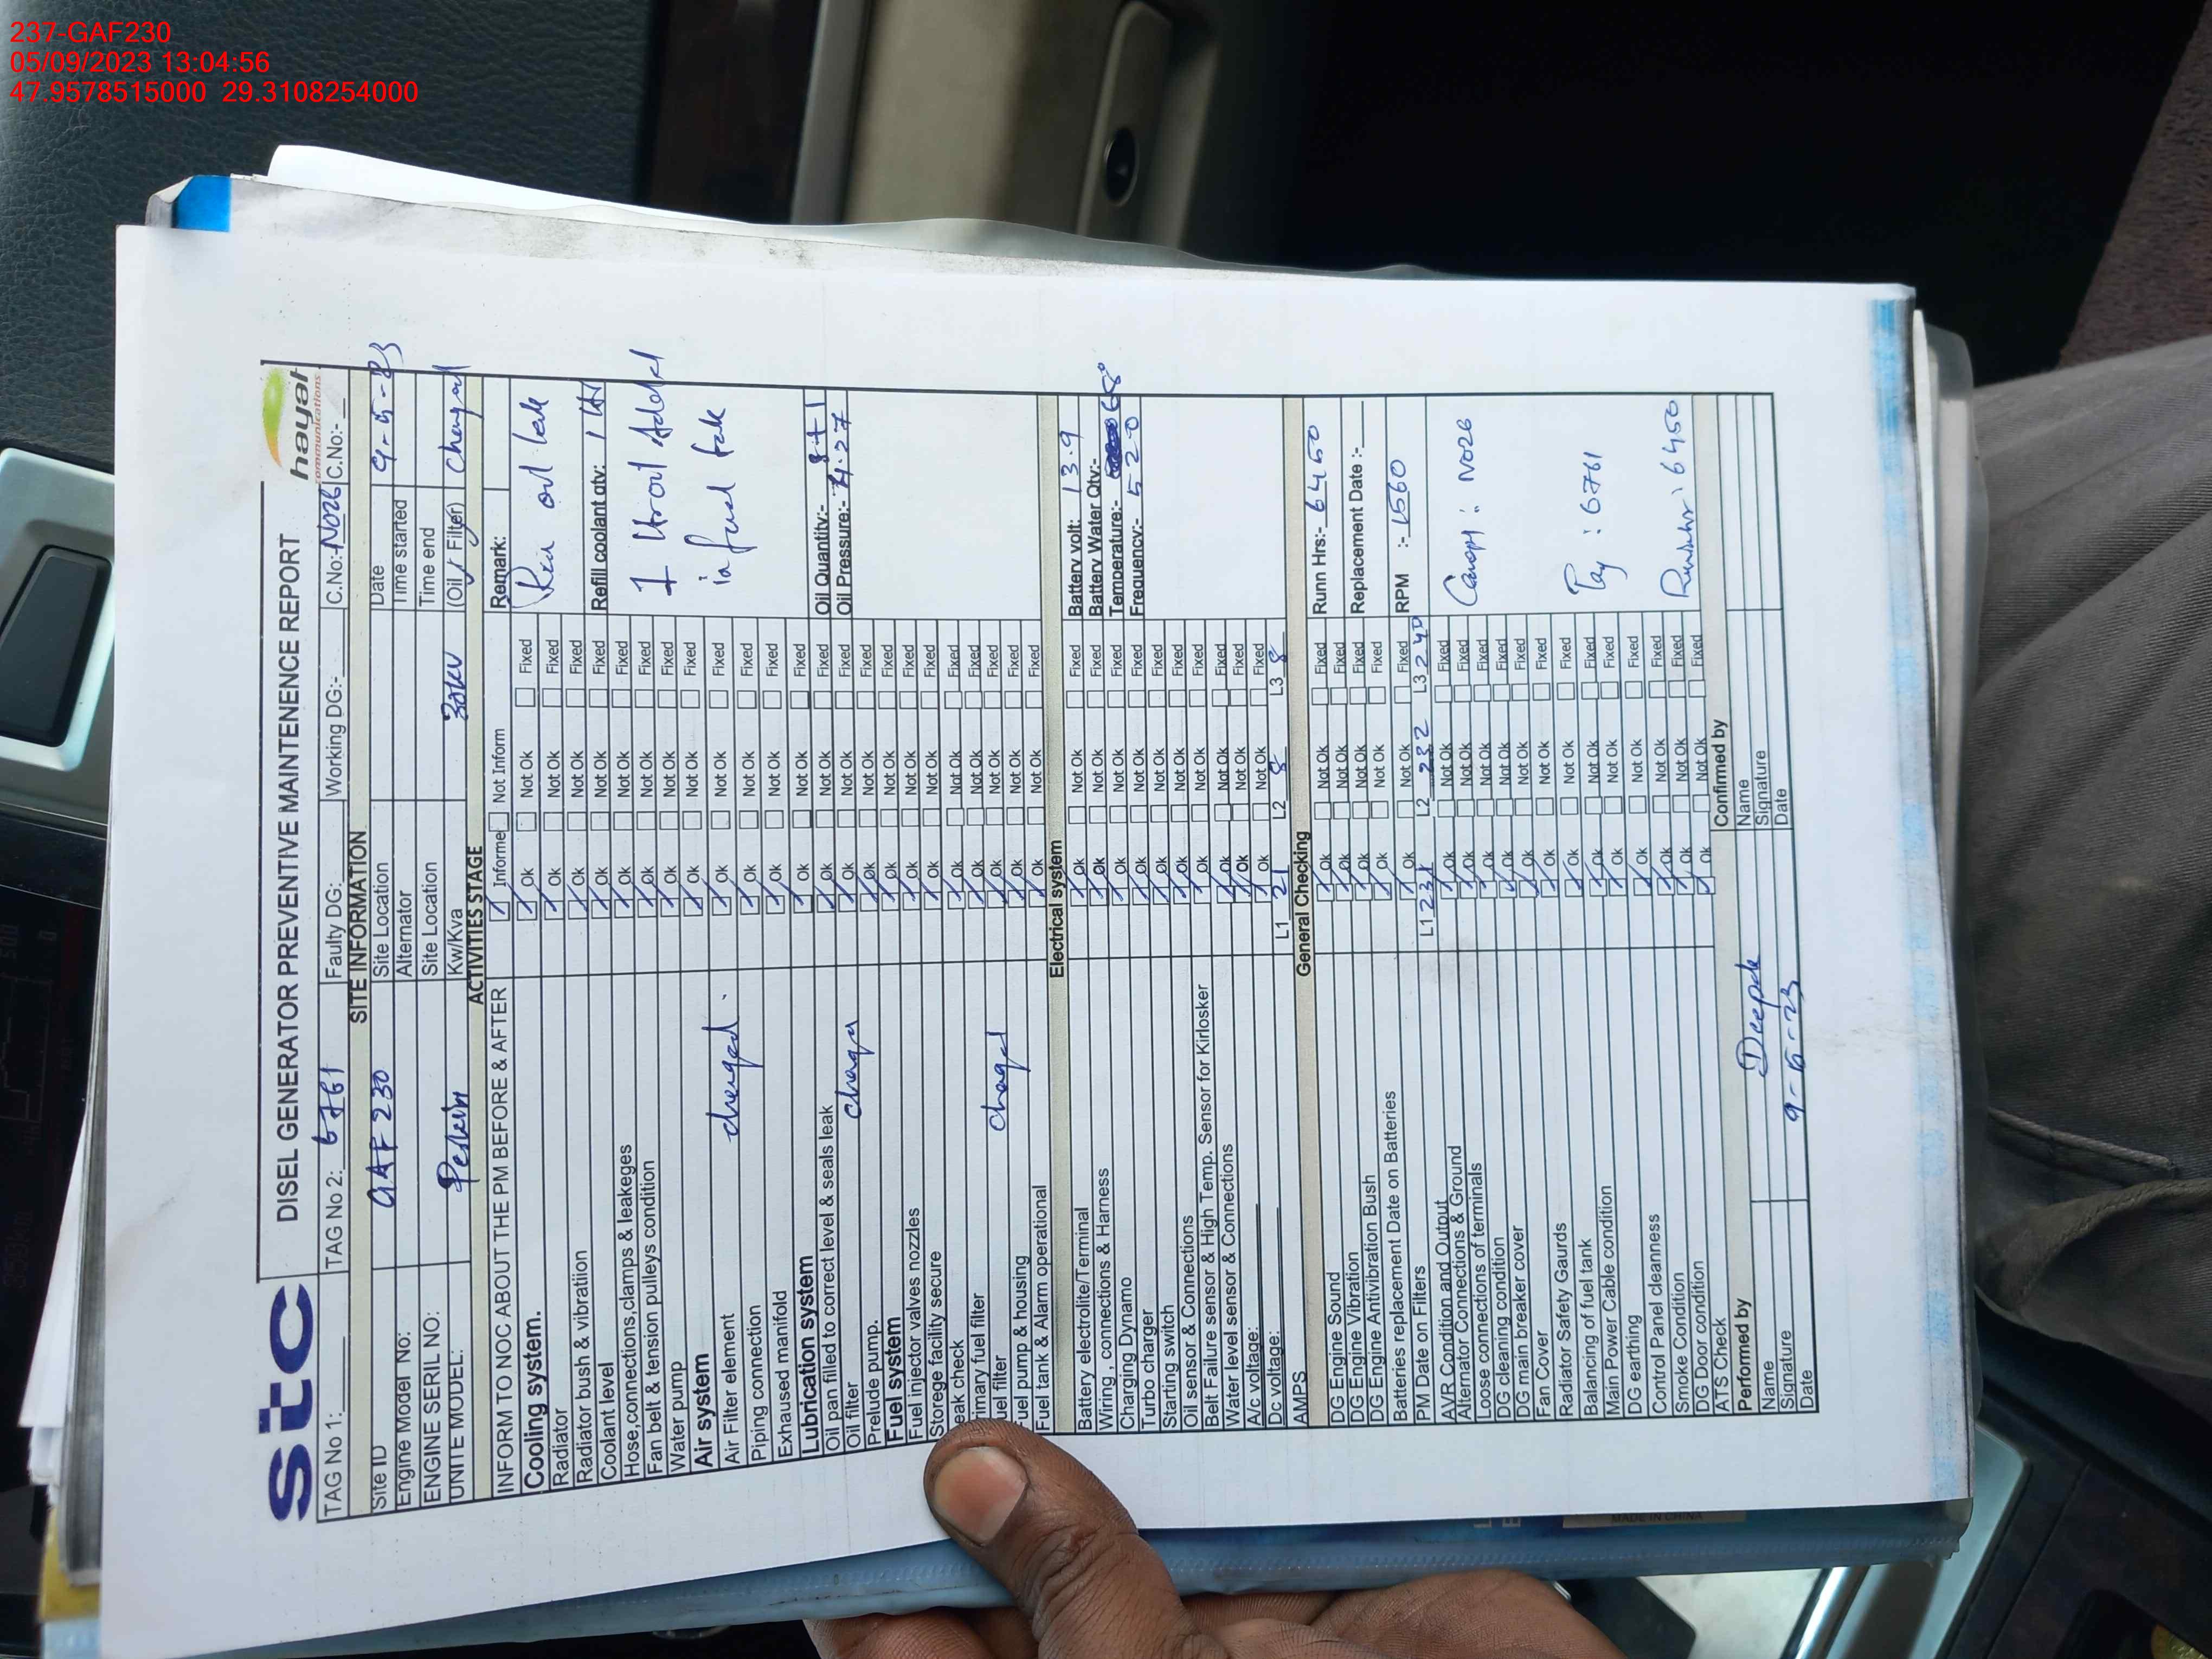 237-GAF230
05/09/2023 13:04:56
47.9578515000 29.3108254000
stc
DISEL GENERATOR PREVENTIVE MAINTENENCE REPORT
hayat
communications
TAG No 1: TAG No 2: 6761 Faulty DG: Working DG:- C.No: N026 C.No:-
SITE INFORMATION
Site ID GAF 230 Site Location Date
Engine Model No: Alternator Time started
ENGINE SERIL NO: Site Location Time end
UNITE MODEL: Kw/Kva 30KW (Oil / Filter) changed
ACTIVITIES STAGE
INFORM TO NOC ABOUT THE PM BEFORE & AFTER Informe Not Inform Remark:
Cooling system. Ok Not Ok Fixed
Radiator Ok Not Ok Fixed out leak
Radiator bush & vibratiion Ok Not Ok Fixed
Coolant level Ok Not Ok Fixed Refill coolant qty:
Hose,connections,clamps & leakeges Ok Not Ok Fixed
Fan belt & tension pulleys condition Ok Not Ok Fixed
Water pump Ok Not Ok Fixed
Air system Ok Not Ok Fixed
Air Filter element changed. Ok Not Ok Fixed
Piping connection Ok Not Ok Fixed
Exhaused manifold Ok Not Ok Fixed
Lubrication system Ok Not Ok Fixed
Oil pan filled to correct level & seals leak Ok Not Ok Fixed Oil Quantity:- 8+1
Oil filter Ok Not Ok Fixed Oil Pressure:- 4.27
Prelude pump. Ok Not Ok Fixed
Fuel system Ok Not Ok Fixed
Fuel injector valves nozzles Ok Not Ok Fixed
Storege facility secure Ok Not Ok Fixed
eak check Ok Not Ok Fixed
rimary fuel filter Ok Not Ok Fixed
uel filter Ok Not Ok Fixed
uel pump & housing Ok Not Ok Fixed
Fuel tank & Alarm operational
Electrical system
Battery electrolite/Terminal Ok Not Ok Fixed Battery volt: 13.9
Wiring , connections & Harness Ok Not Ok Fixed Battery Water Qty:-
Charging Dynamo Ok Not Ok Fixed Temperature:- 68°
Turbo charger Ok Not Ok Fixed Frequency:- 520
Starting switch Ok Not Ok Fixed
Oil sensor & Connections Ok Not Ok Fixed
Belt Failure sensor & High Temp. Sensor for Kirlosker Ok Not Ok Fixed
Water level sensor & Connections Ok Not Ok Fixed
A/c voltage: Ok Not Ok Fixed
Dc voltage:
AMPS L1 21 L2 8 L3 8
General Checking
DG Engine Sound Ok Not Ok Fixed Runn Hrs:- 6450
DG Engine Vibration Ok Not Ok Fixed
DG Engine Antivibration Bush Ok Not Ok Fixed Replacement Date :-
Batteries replacement Date on Batteries Ok Not Ok Fixed
PM Date on Filters Ok Not Ok Fixed RPM :- 1560
AVR Condition and Output L1 231 L2 232 L3
Alternator Connections & Ground Ok Not Ok Fixed
Loose connections of terminals Ok Not Ok Fixed
DG cleaning condition Ok Not Ok Fixed
DG main breaker cover Ok Not Ok Fixed
Fan Cover Ok Not Ok Fixed
Radiator Safety Gaurds Ok Not Ok Fixed
Balancing of fuel tank Ok Not Ok Fixed
Main Power Cable condition Ok Not Ok Fixed
DG earthing Ok Not Ok Fixed
Control Panel cleanness Ok Not Ok Fixed
Smoke Condition Ok Not Ok Fixed
DG Door condition Ok Not Ok Fixed
ATS Check
: N026
Tag : 6761
: 6450
Performed by Confirmed by
Name Deepak Name
Signature Signature
Date Date